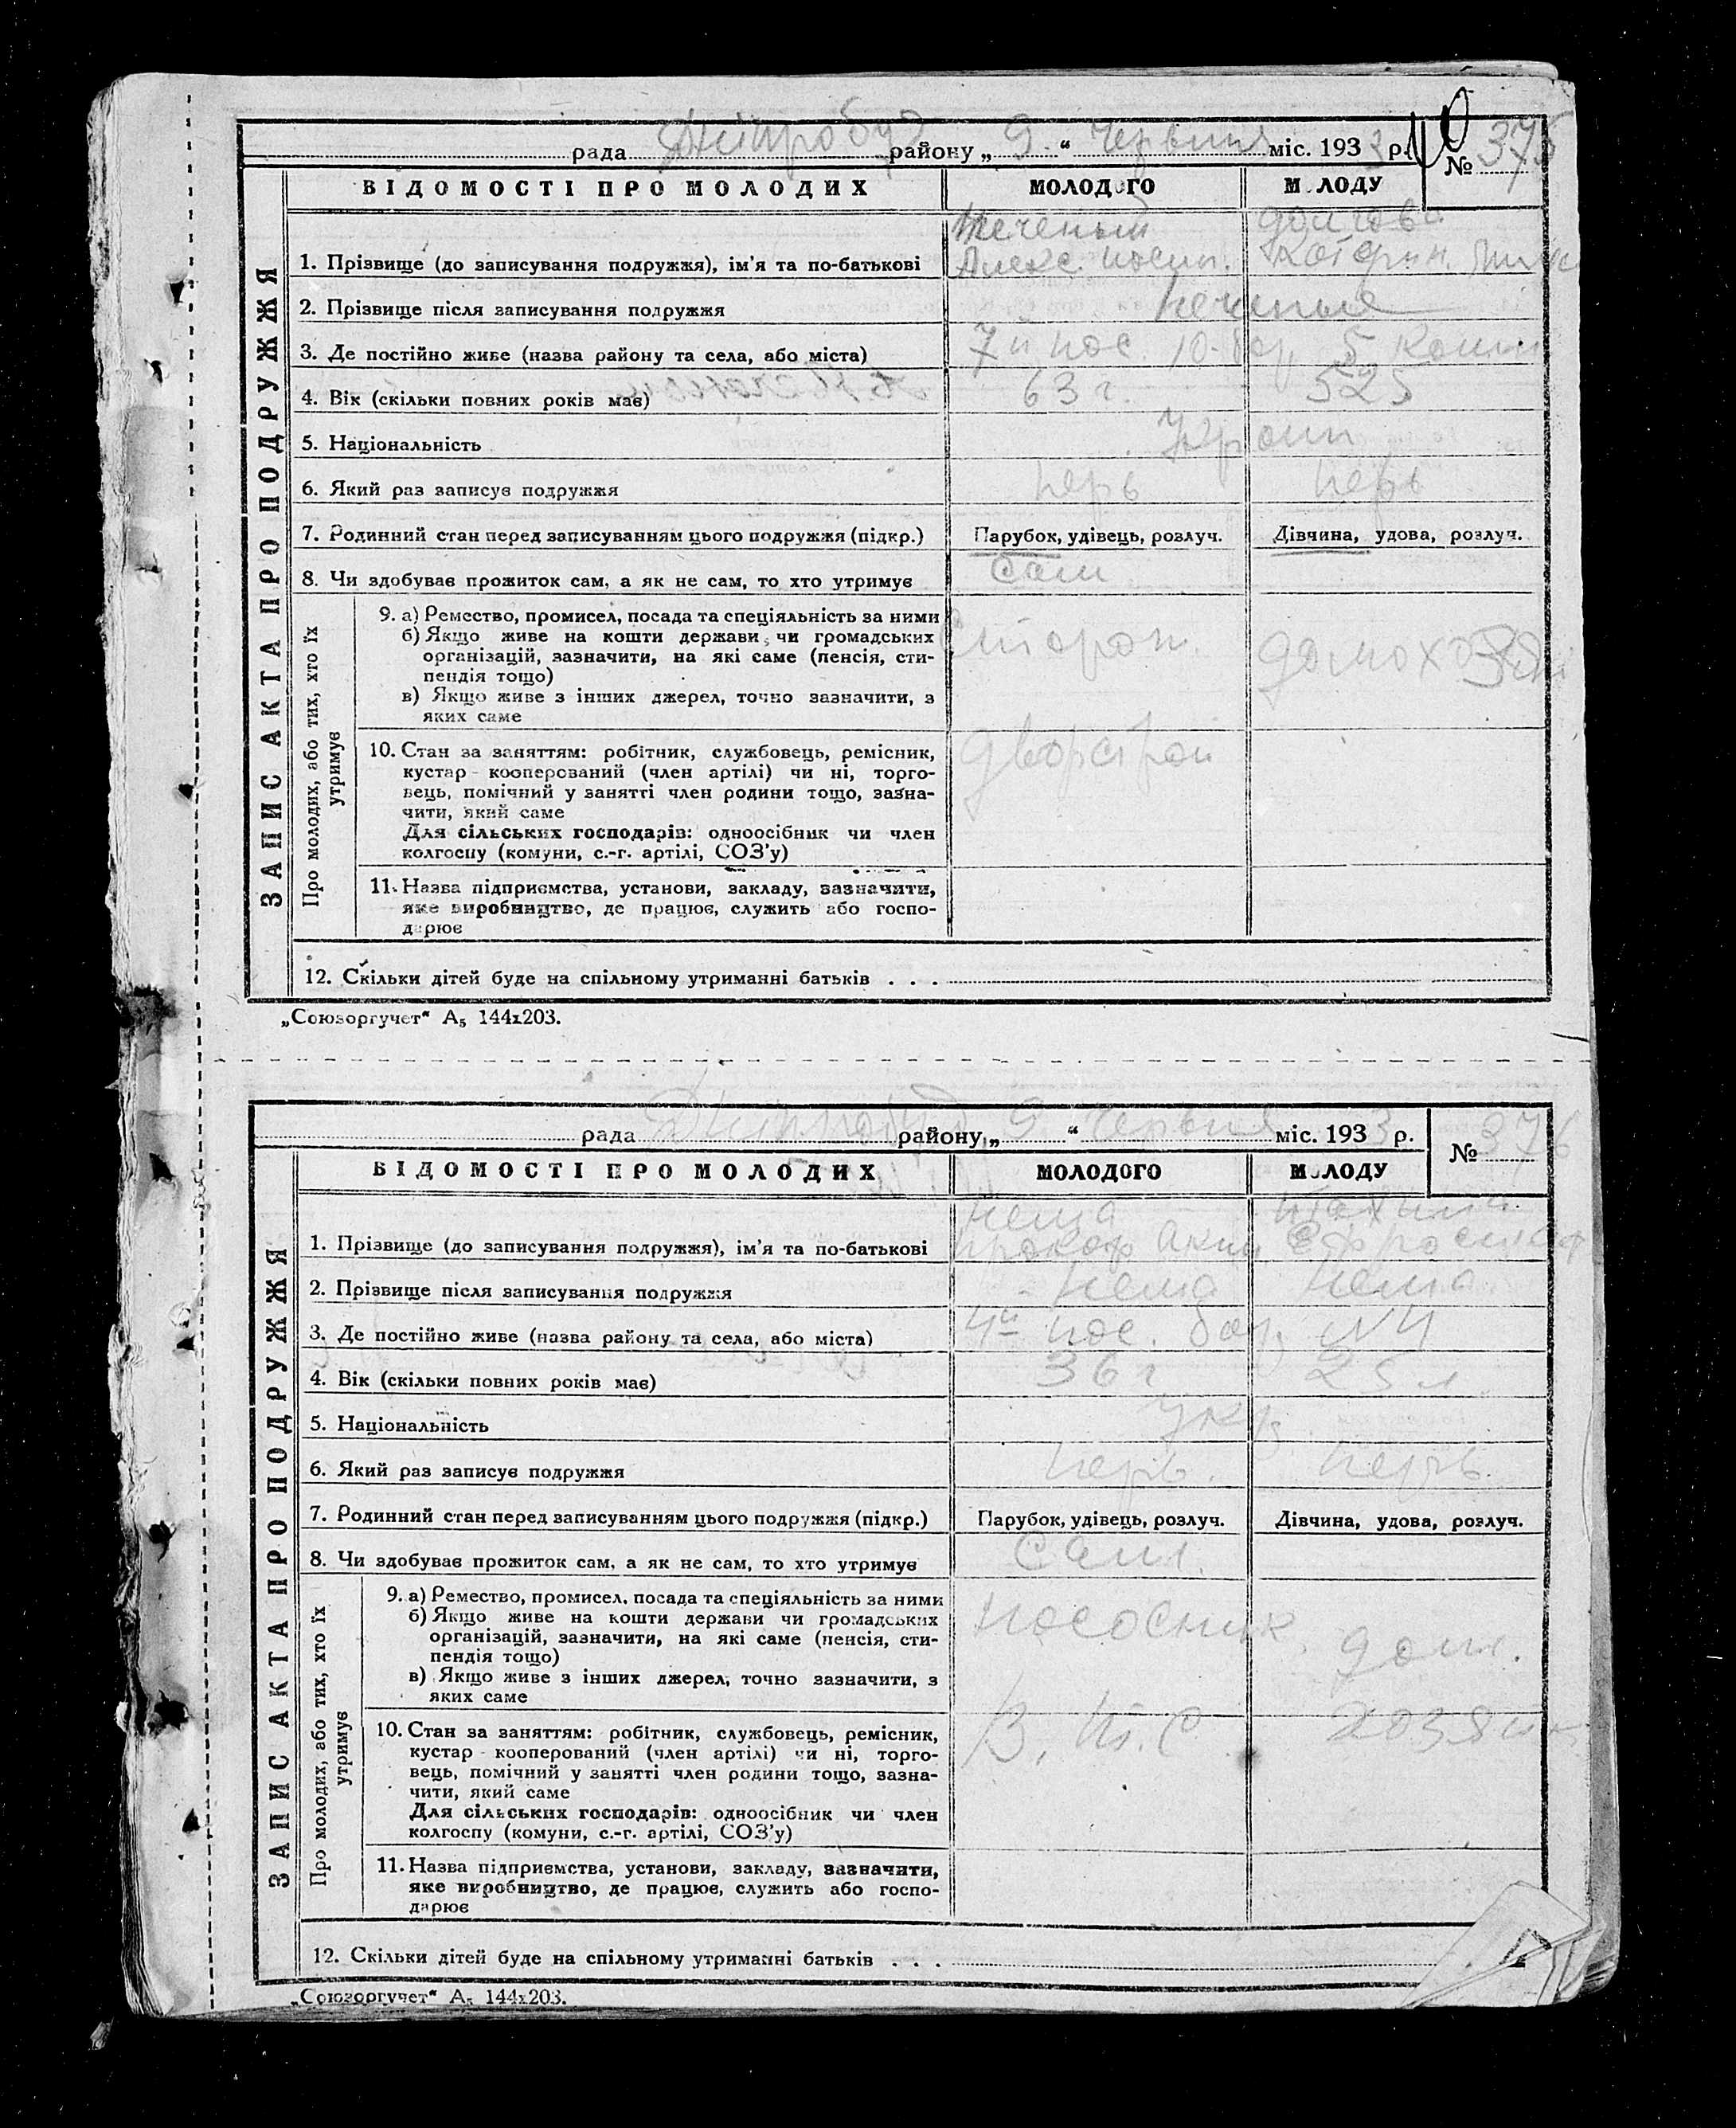 рада Дніпробуд району „ 9 “ червня міс. 1933 р. № 375
ВІДОМОСТІ ПРО МОЛОДИХ МОЛОДОГО МОЛОДУ
ЗАПИС АКТА ПРО ПОДРУЖЖЯ
1. Прізвище (до записування подружжя), ім’я та по-батькові Алекс.
2. Прізвище після записування подружжя
3. Де постійно живе (назва району та села, або міста) 7й пос. 10-бар.
4. Вік (скільки повних років має) 63 г.
5. Національність
6. Який раз записує подружжя перв перв
7. Родинний стан перед записуванням цього подружжя (підкр.) Парубок, удівець, розлуч. Дівчина, удова, розлуч.
8. Чи здобуває прожиток сам, а як не сам, то хто утримує Сам
Про молодих, або тих, хто їх утримує
9. а) Ремество, промисел, посада та спеціяльність за ними
б) Якщо живе на кошти держави, чи громадських
організацій, зазначити, на які саме (пенсія, сти-
пендія тощо)
в) Якщо живе з інших джерел, точно зазначити, з
яких саме
Сторож.
10. Стан за заняттям: робітник, службовець, ремісник,
кустар - кооперований (член артілі) чи ні, торго-
вець, помічний у занятті член родини тощо, зазна-
чити, який саме
Для сільських господарів: одноосібник чи член
колгоспу (комуни, с.-г. артілі, СОЗ’у)
Дворстрой
11. Назва підприємства, установи, закладу, зазначити,
яке виробництво, де працює, служить або госпо-
дарює
12. Скільки дітей буде на спільному утриманні батьків . . .
„Союзоргучет“ А₅ 144х203.
рада Дніпробуд району „ 9 “ червня міс. 1933 р. № 376
ВІДОМОСТІ ПРО МОЛОДИХ МОЛОДОГО МОЛОДУ
ЗАПИС АКТА ПРО ПОДРУЖЖЯ
1. Прізвище (до записування подружжя), ім’я та по-батькові Прокоф Аким
2. Прізвище після записування подружжя
3. Де постійно живе (назва району та села, або міста) 4й пос. бар. №4
4. Вік (скільки повних років має) 36 г 25 л.
5. Національність Укр.
6. Який раз записує подружжя перв. перв.
7. Родинний стан перед записуванням цього подружжя (підкр.) Парубок, удівець, розлуч. Дівчина, удова, розлуч.
8. Чи здобуває прожиток сам, а як не сам, то хто утримує Сам.
Про молодих, або тих, хто їх утримує
9. а) Ремество, промисел, посада та спеціяльність за ними
б) Якщо живе на кошти держави чи громадських
організацій, зазначити, на які саме (пенсія, сти-
пендія тощо)
в) Якщо живе з інших джерел, точно зазначити, з
яких саме
дом.
10. Стан за заняттям: робітник, службовець, ремісник,
кустар - кооперований (член артілі) чи ні, торго-
вець, помічний у занятті член родини тощо, зазна-
чити, який саме
Для сільських господарів: одноосібник чи член
колгоспу (комуни, с.-г. артілі, СОЗ’у)
11. Назва підприємства, установи, закладу, зазначити,
яке виробництво, де працює, служить або госпо-
дарює
12. Скільки дітей буде на спільному утриманні батьків . . .
„Союзоргучет“ А₅ 144х203.